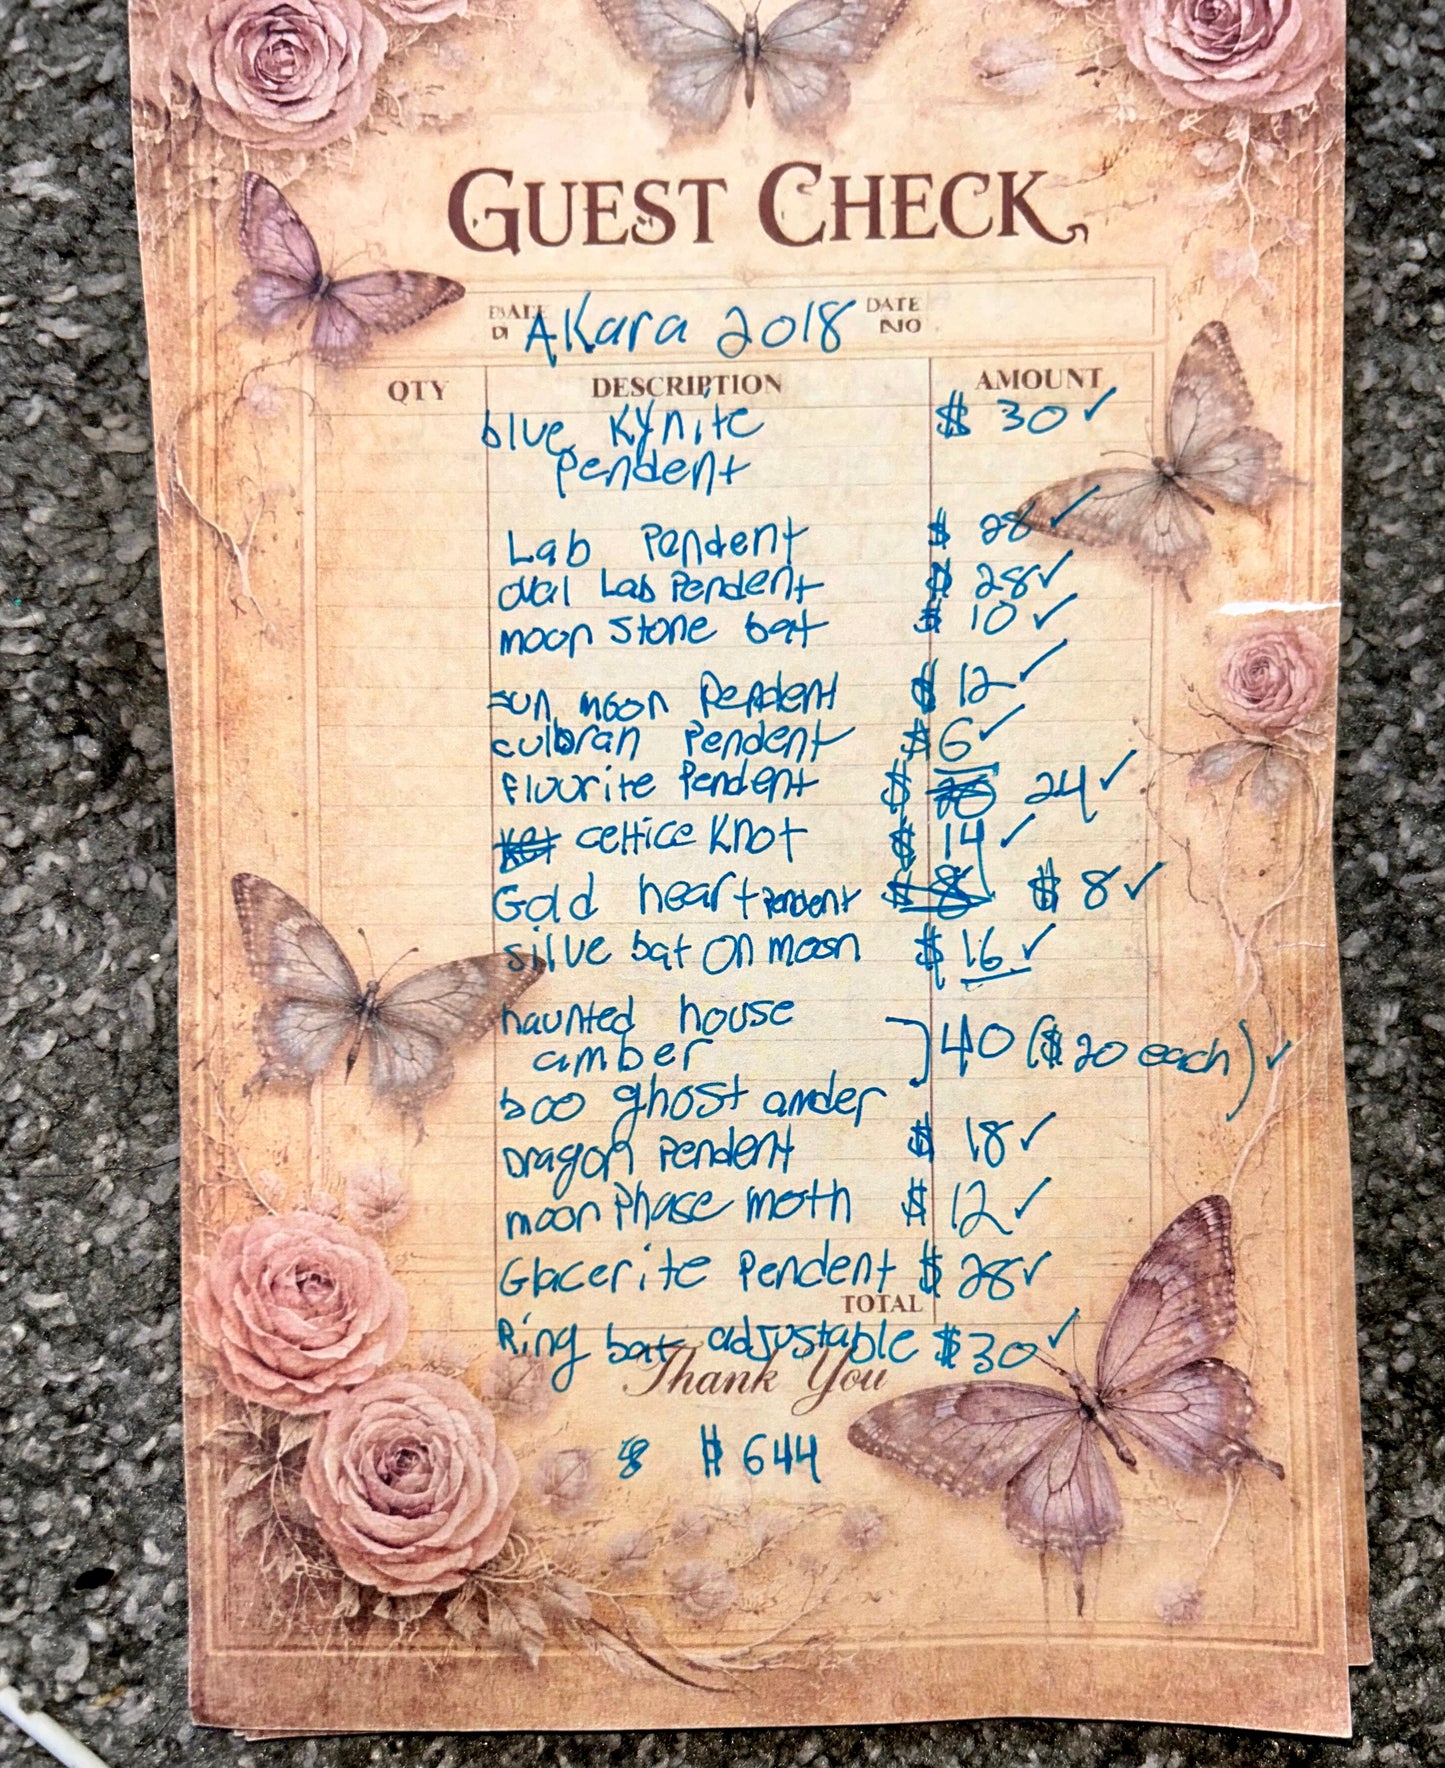 GUEST CHECK
AKara 2018 DATE
NO
QTY DESCRIPTION AMOUNT
blue Kynite $ 30 ✓
Pendent
Lab Pendent $ 28 ✓
oval Lab Pendent $ 28 ✓
moon stone bat $ 10 ✓
sun moon Pendent $ 12 ✓
culbran Pendent $ 6 ✓
flourite Pendent $ 24 ✓
celtice Knot $ 14 ✓
Gold heart Pendent $ 8 ✓
silve bat on moon $ 16 ✓
haunted house
amber 40 ($ 20 each) ✓
boo ghost amder
Dragon Pendent $ 18 ✓
moon Phase moth $ 12 ✓
Glacerite Pendent $ 28 ✓
TOTAL
Ring bat adjustable $ 30 ✓
Thank You
$ 644